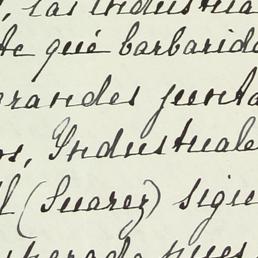 , las Industria
te qué barbarida
grandes junta
os, Industriale
l (Suarez) sigue